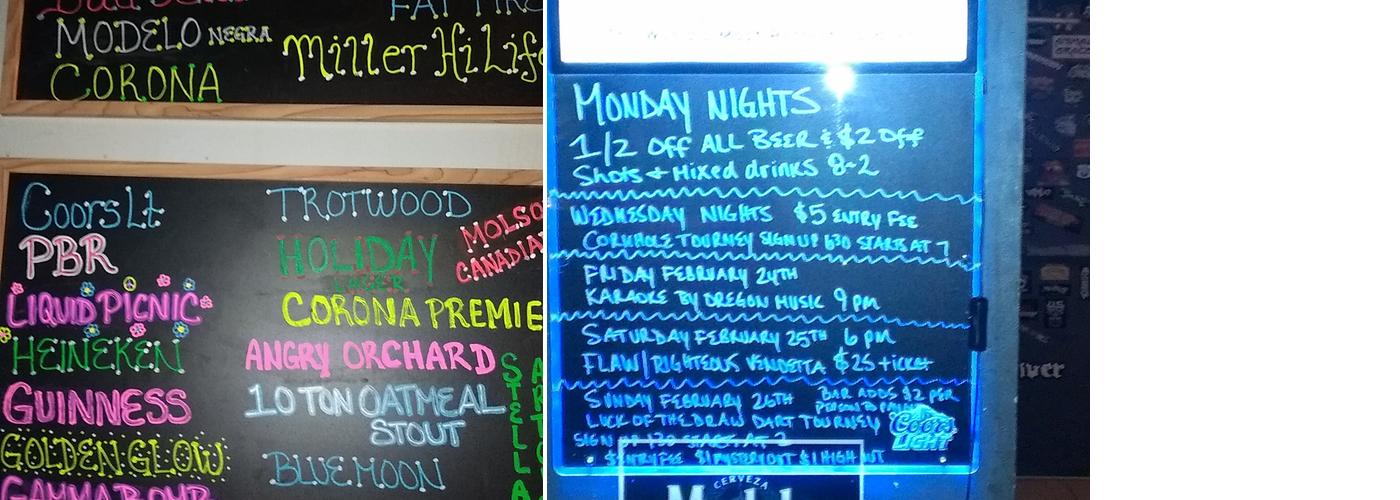 MODELO NEGRA
Miller Hi Life
CORONA
Coors Lt
PBR
LIQUID PICNIC
HEINEKEN
GUINNESS
GOLDEN GLOW
TROTWOOD
HOLIDAY
LAGER
MOLSO
CANADIAN
CORONA PREMIE
ANGRY ORCHARD
10 TON OATMEAL
STOUT
BLUE MOON
STELLA
MONDAY NIGHTS
1/2 Off ALL BEER & $2 Off
Shots + Mixed drinks 8-2
WEDNESDAY NIGHTS $5 ENTRY FEE
CORNHOLE TOURNEY SIGN UP 630 STARTS AT 7
FRIDAY FEBRUARY 24TH
KARAOKE BY OREGON MUSIC 9 PM
SATURDAY FEBRUARY 25TH 6 PM
FLAW/RIGHTEOUS VENDETTA $25 ticket
SUNDAY FEBRUARY 26TH
BAR ADDS $2 PER
PERSON TO
LUCK OF THE DRAW DART TOURNEY
SIGN UP 130 STARTS AT 2
$ ENTRY FEE $1 MYSTERY OUT $1 HIGH OUT
Coors
LIGHT
CERVEZA